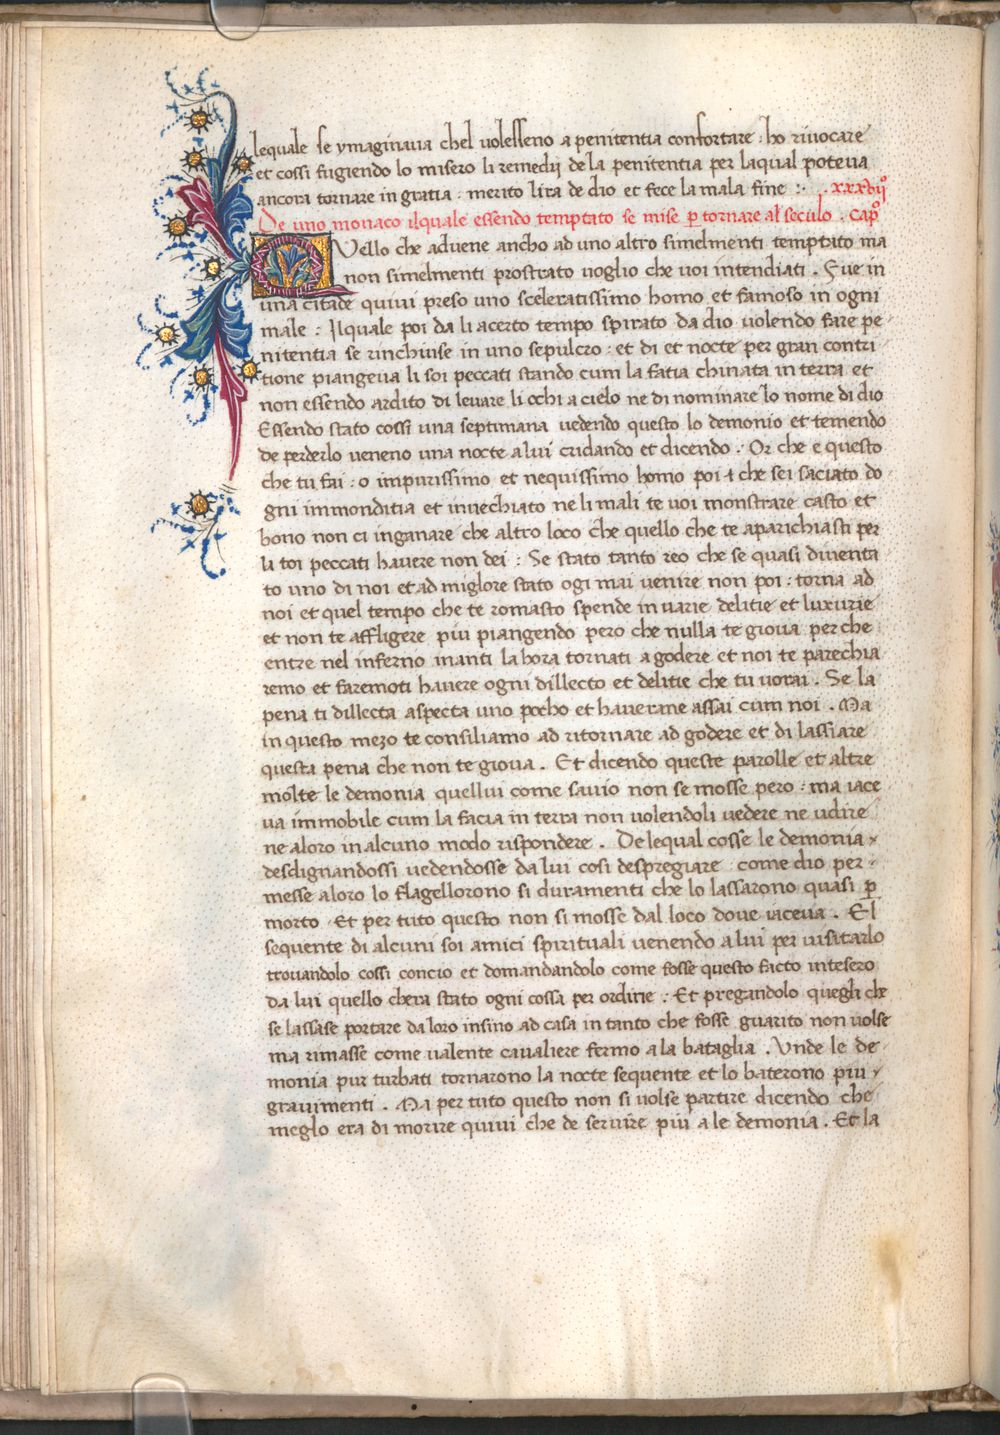 lequale se ymaginaua chel uolesseno a penitentia confortare · ho riuocare
et cossi fugiendo lo misero li remedij de la penitentia per laqual poteua
ancora tornare in gratia : merito lira de dio et fece la mala fine : · .xxxvijº
De uno monaco ilquale essendo temptato se mise p̱ tornare al seculo . capº
QVello che aduene ancho ad uno altro simelmenti temptato ma
non simelmenti prostrato uoglio che uoi intendiati . Fue in
una citade quiui preso uno sceleratissimo homo et famoso in ogni
male : Ilquale poi da li acerto tempo spirato da dio uolendo fare pe-
nitentia se rinchiuse in uno sepulcro : et di et nocte per gran contri-
tione piangeua li soi peccati stando cum la fatia chinata in terra et
non essendo ardito di leuare li ochi a cielo ne di nominare lo nome di dio
Essendo stato cossi una septimana uedendo questo lo demonio et temendo
de perderlo ueneno una nocte a lui cridando et dicendo : Or che e questo
che tu fai : o impurissimo et nequissimo homo poi che sei saciato do
gni immonditia et inuechiato ne li mali te uoi monstrare casto et
bono non ci inganare che altro loco che quello che te aparichiasti per
li toi peccati hauere non dei : Se stato tanto reo che se quasi diuenta
to uno di noi et ad miglore stato ogi mai uenire non poi : torna ad
noi et quel tempo che te romasto spende in uarie delitie et luxurie
et non te affligere piu piangendo pero che nulla te gioua perche
entre nel inferno inanti la hora tornati a godere et noi te parechia
remo et faremoti hauere ogni dillecto et delitie che tu uorai . Se la
pena ti dillecta aspecta uno pocho et hauerane assai cum noi . Ma
in questo mezo te consiliamo ad ritornare ad godere et di lassiare
questa pena che non te gioua . Et dicendo queste parolle et altre
molte le demonia quellui come sauio non se mosse pero : ma iace
ua immobile cum la facia in terra non uolendoli uedere ne udire
ne aloro in alcuno modo rispondere . Delequal cosse le demonia
desdignandossi uedendosse da lui cosi despregiare come dio per-
messe aloro lo flagellorono si duramenti che lo lassarono quasi p̱
morto Et per tuto questo non si mosse dal loco doue iaceua . El
sequente di alcuni soi amici spirituali uenendo a lui per uisitarlo
trouandolo cossi concio et domandandolo come fosse questo facto intesero
da lui quello chera stato ogni cossa per ordine : Et pregandolo quegli che
se lassase portare da loro insino ad casa in tanto che fosse guarito non uolse
ma rimasse come ualente caualiere fermo a la bataglia . Vnde le de
monia pur turbati tornarono la nocte sequente et lo baterono piu
grauimenti . Ma per tuto questo non si uolse partire dicendo che
meglo era di morire quiui che de seruire piu a le demonia . Et la